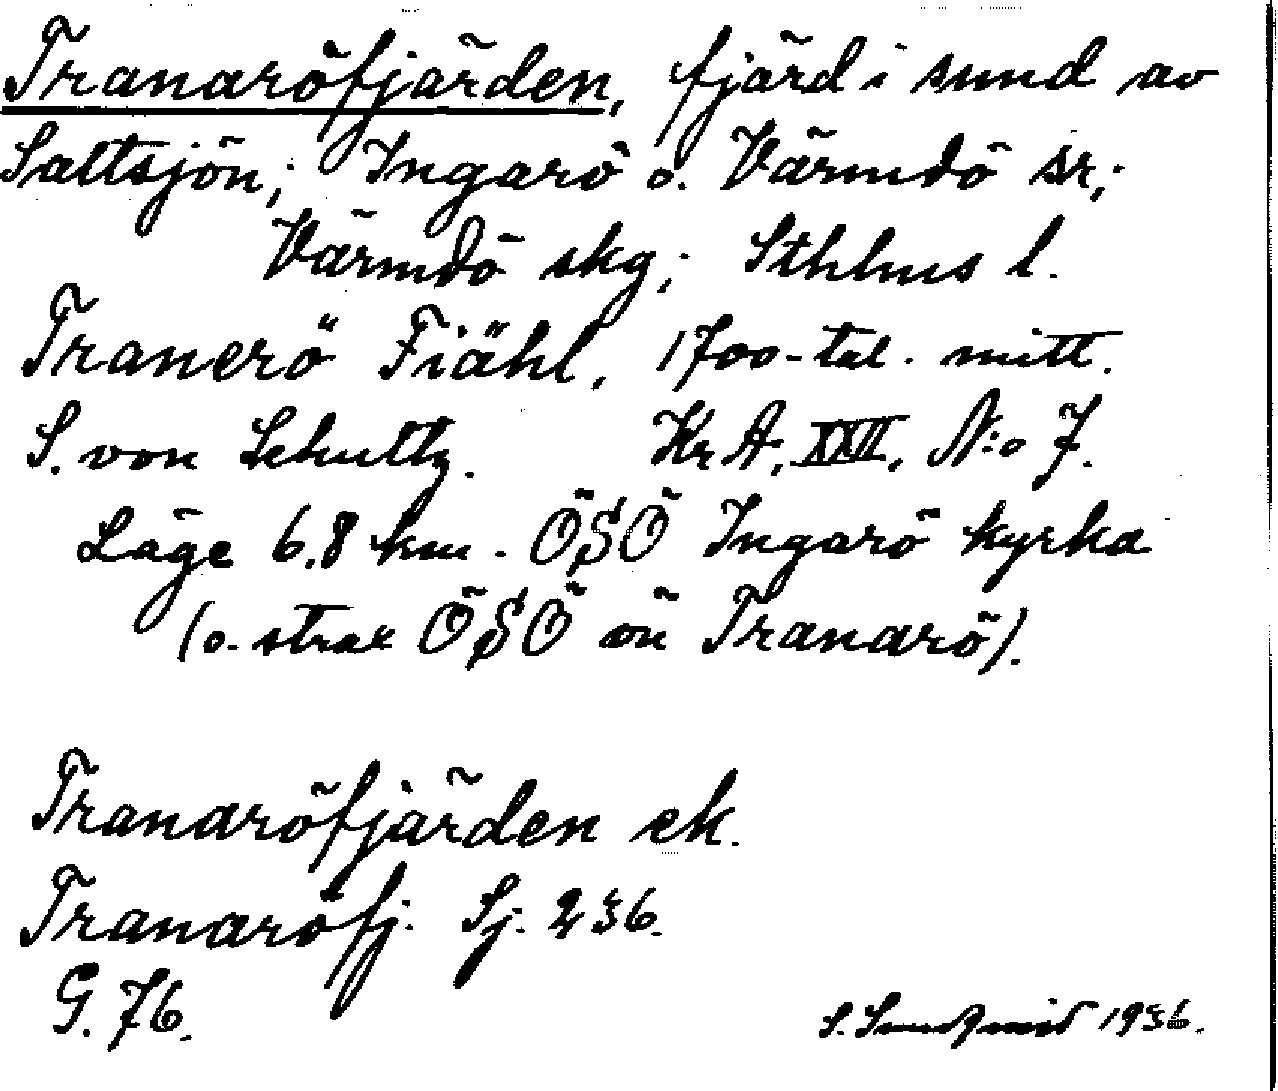 Tranaröfjärden, fjärd i sund av
Saltsjön; Ingarö o. Värmdö sr;
Värmdö skg; Sthlms l.
Tranerö Fiähl, 1700-tal. mitt.
S. von Schultz. Kr A, XXII, N:o 7.
Läge 6.8 km. ÖSÖ Ingarö kyrka
(o. strax ÖSÖ ön Tranarö).
Tranaröfjärden ek.
Tranaröfj. Sj. 236.
G. 76.
S. Sundqvist 1936.